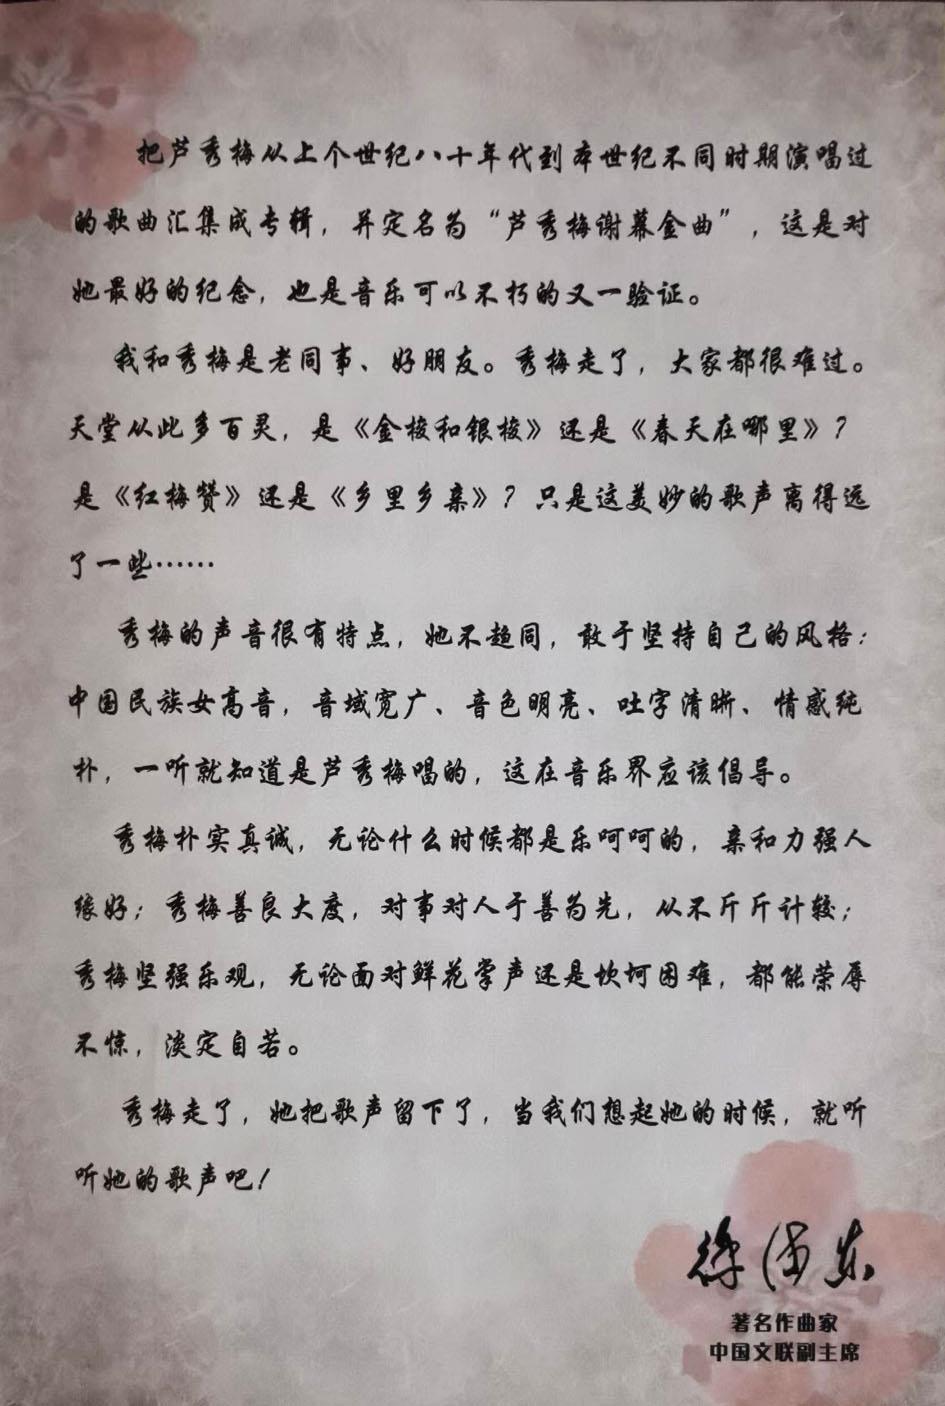 把芦秀梅从上个世纪八十年代到本世纪不同时期演唱过
的歌曲汇集成专辑，并定名为“芦秀梅谢幕金曲”，这是对
她最好的纪念，也是音乐可以不朽的又一验证。
我和秀梅是老同事、好朋友。秀梅走了，大家都很难过。
天堂从此多百灵，是《金梭和银梭》还是《春天在哪里》？
是《红梅赞》还是《乡里乡亲》？只是这美妙的歌声离得远
了一些……
秀梅的声音很有特点，她不趋同，敢于坚持自己的风格：
中国民族女高音，音域宽广、音色明亮、吐字清晰、情感纯
朴，一听就知道是芦秀梅唱的，这在音乐界应该倡导。
秀梅朴实真诚，无论什么时候都是乐呵呵的，亲和力强人
缘好；秀梅善良大度，对事对人于善为先，从不斤斤计较；
秀梅坚强乐观，无论面对鲜花掌声还是坎坷困难，都能荣辱
不惊，淡定自若。
秀梅走了，她把歌声留下了，当我们想起她的时候，就听
听她的歌声吧！
徐沛东
著名作曲家
中国文联副主席